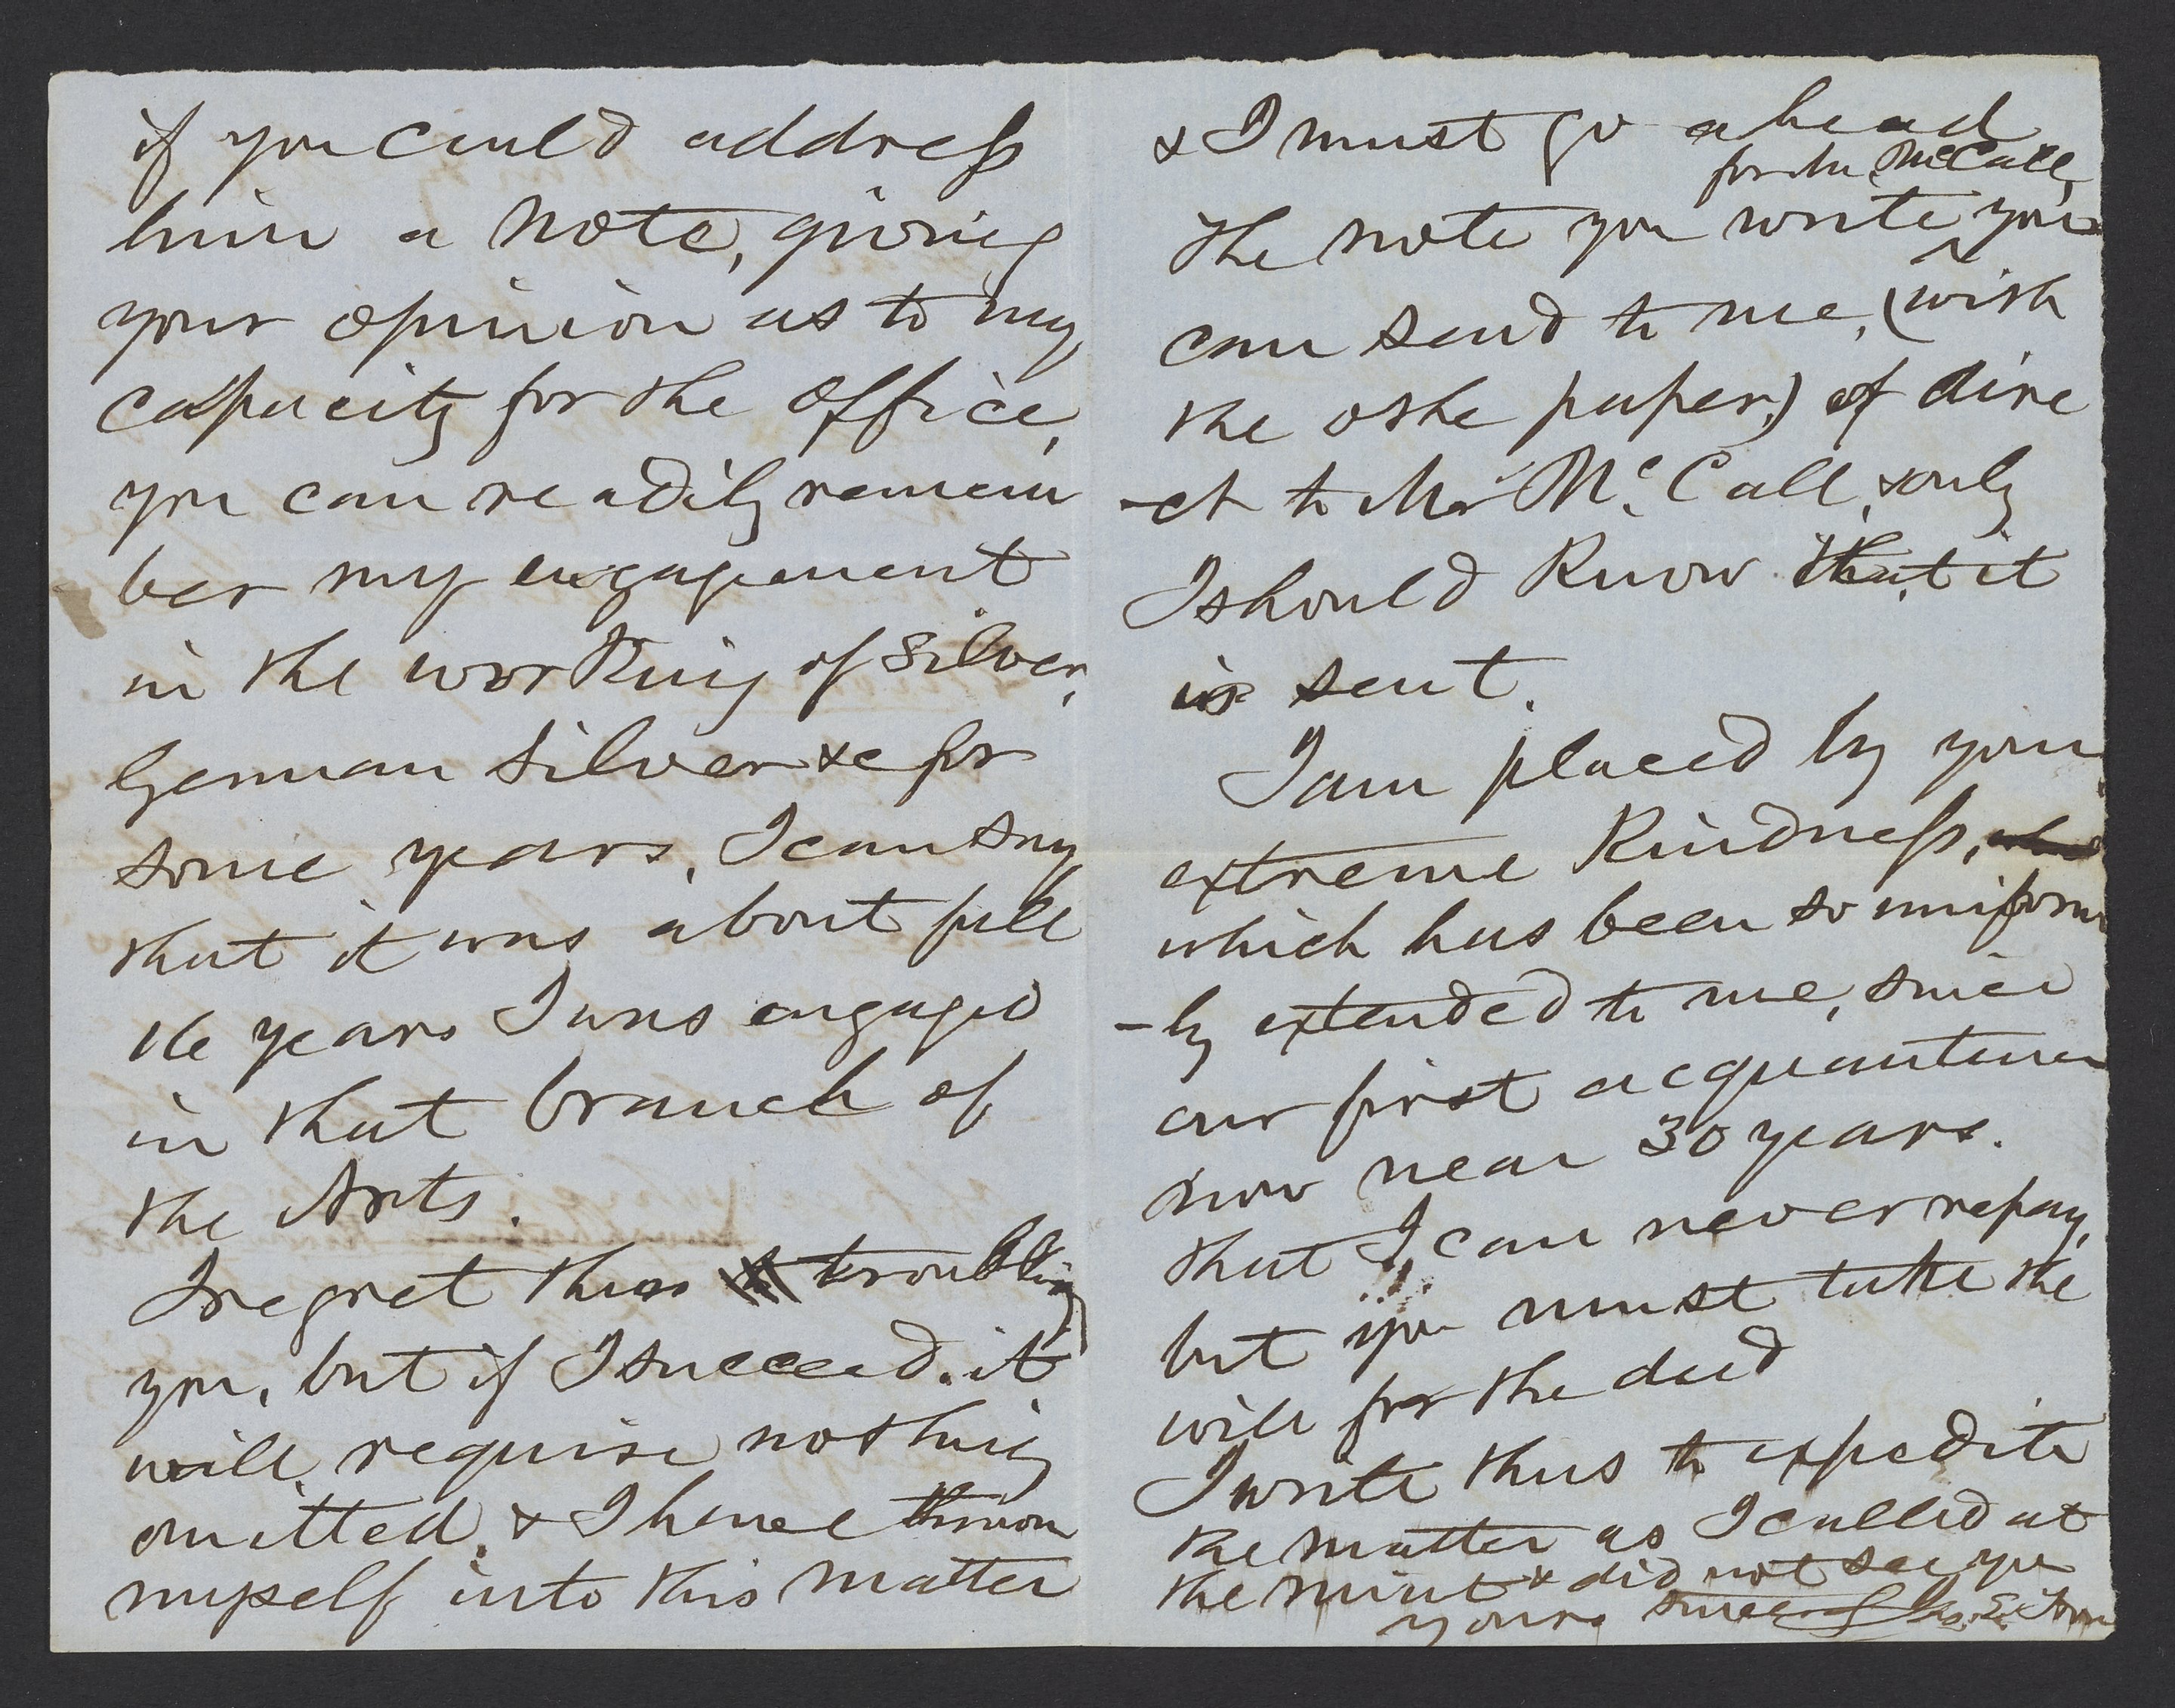 if you could address
him a note, giving
your opinion as to my
capacity for the office,
you can readily remem
ber my engagement
in the working of silver,
German silver &c for
some years, I can say
that it was about full
16 years I was engaged
in that branch of
the Arts.
I regret thus troubling
you, but if I succeed. it
will require nothing
omitted. & I have thrown
myself into this matter
& I must go ahead
for Mr McCall,
The note you write you
can send to me, (with
the othe paper) of dire
-ct to Mr McCall, & only
I should know that it
is sent.
I am placed by your
extreme Kindness,
which has been so uniform
-ly extended to me, since
our first acquantance
now near 30 years.
that I can never repay,
but you must take the
will for the deed
I write thus to expedite
the matter as I called at
the mint & did not see you
yours